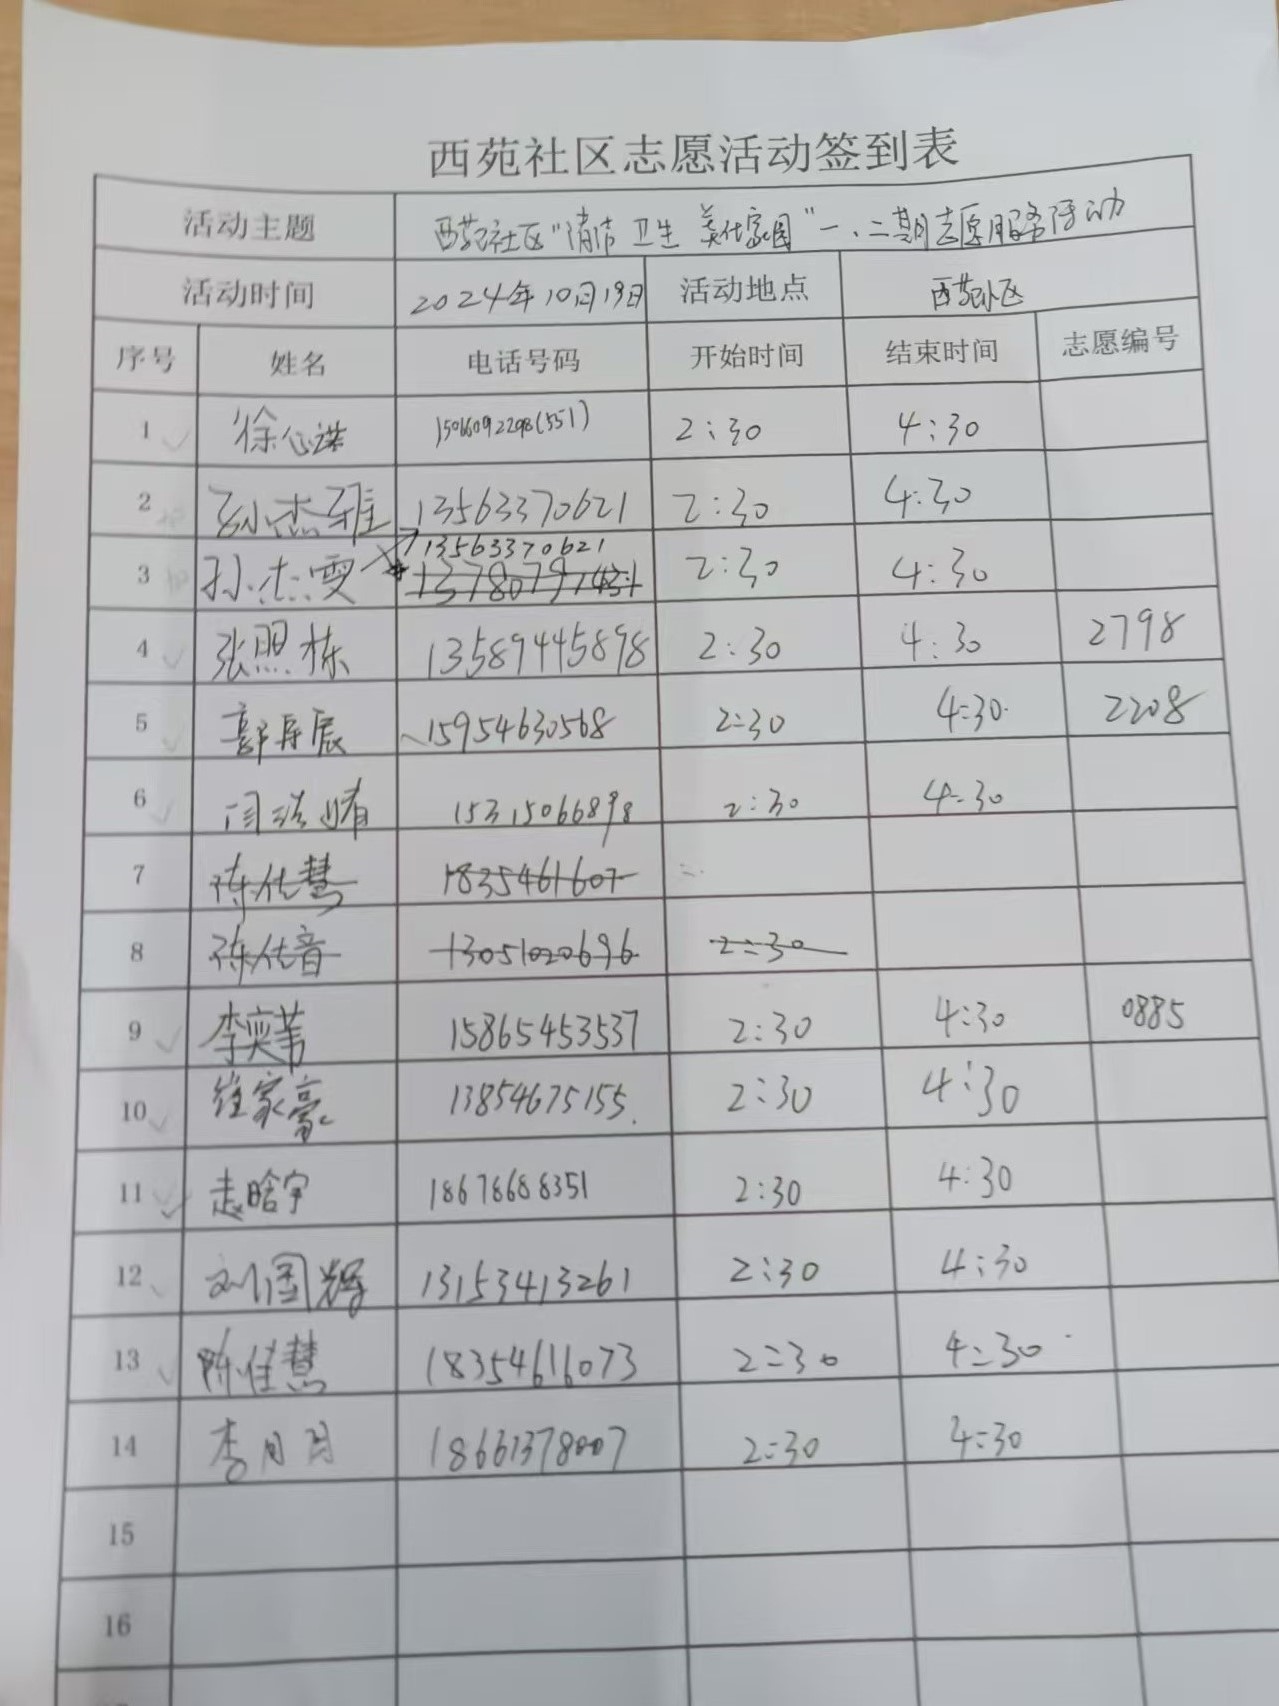 西苑社区志愿活动签到表
活动主题 西苑社区"清洁卫生 美化家园"一、二期志愿服务活动
活动时间 2024年10月19日 活动地点 西苑小区
序号 姓名 电话号码 开始时间 结束时间 志愿编号
1 徐心诺 15066092298(551) 2:30 4:30
2 孙杰 13563370621 2:30 4:30
13563370621
3 孙杰雯 13780797431 2:30 4:30
4 张照栋 13589445898 2:30 4:30 2798
5 郭辰 15954630568 2:30 4:30 2208
6 闫 15315066898 2:30 4:30
7 陈佳慧 1835461607
8 陈佳音 13051020696 2:30
9 李奕苇 15865453537 2:30 4:30 0885
10 崔家豪 13854675155. 2:30 4:30
11 赵晗宇 18678688351 2:30 4:30
12 刘国辉 13153413261 2:30 4:30
13 陈佳慧 18354616073 2:30 4:30
14 李月月 18661378007 2:30 4:30
15
16